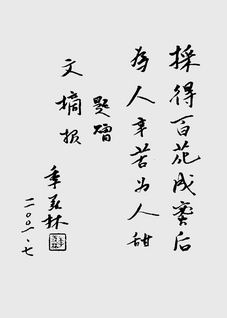 採得百花成蜜后
为人辛苦为人甜
题赠
文摘报
季羡林
二〇〇一·七